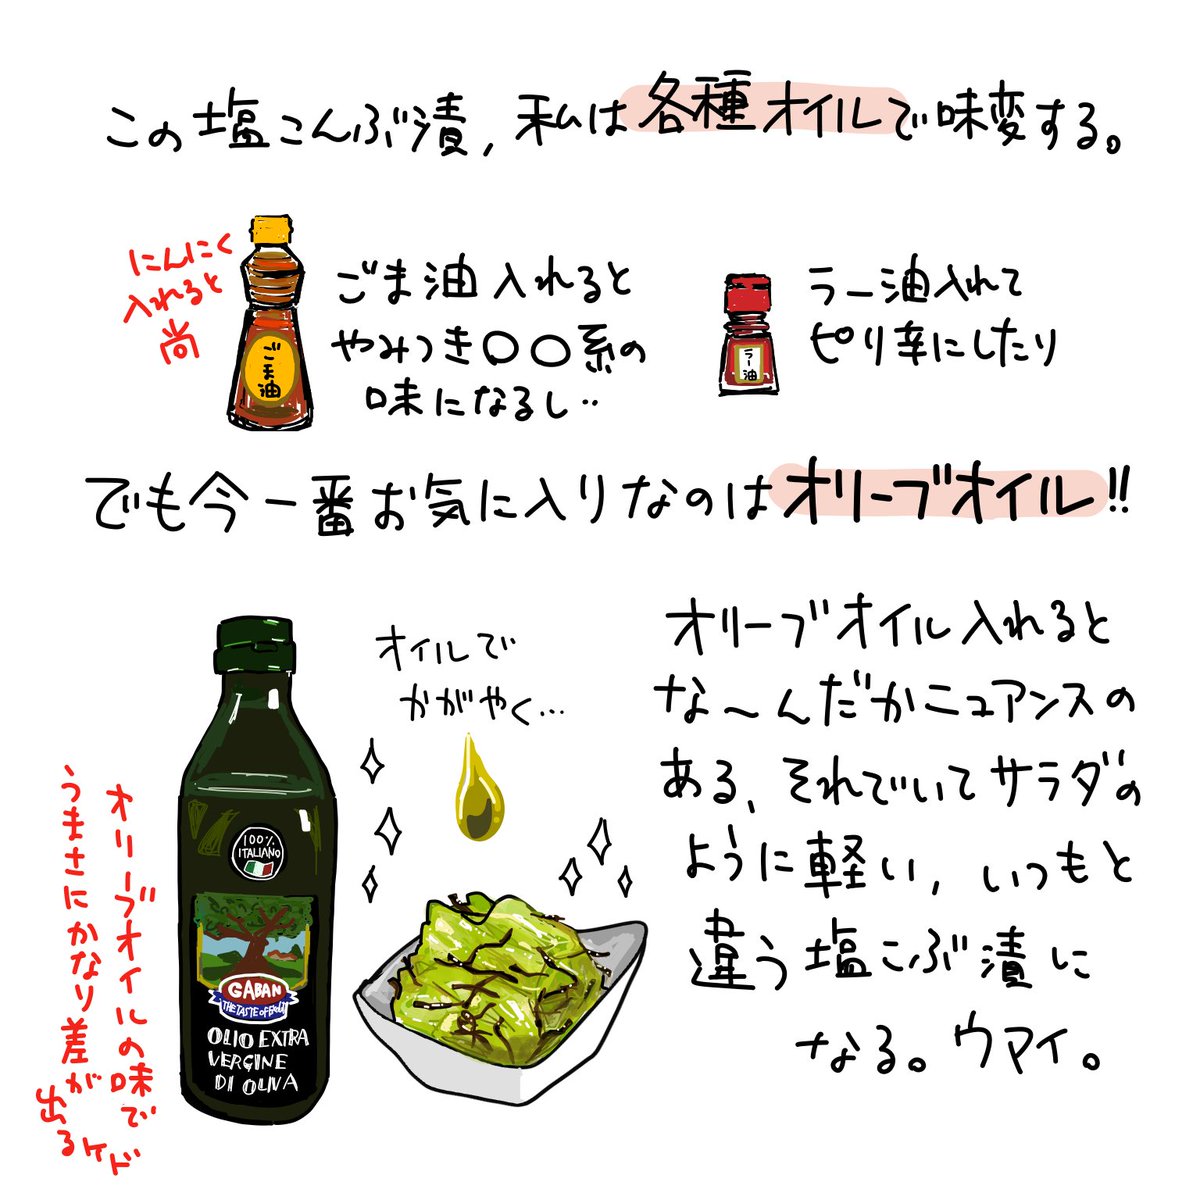 この塩こんぶ漬, 私は各種オイルで味変する。
にんにく
入れると
尚
ごま油
ごま油入れると
やみつき〇〇系の
味になるし‥
ラー油
ラー油入れて
ピリ辛にしたり
でも今一番お気に入りなのはオリーブオイル!!
オイルで
かがやく…
オリーブオイル入れると
な〜んだかニュアンスの
ある、それでいてサラダの
ように軽い, いつもと
違う塩こぶ漬に
なる。ウマイ。
100%
ITALIANO
GABAN
THE TASTE OF
OLIO EXTRA
VERGINE
DI OLIVA
オリーブオイルの味で
うまさにかなり差が
出るケド